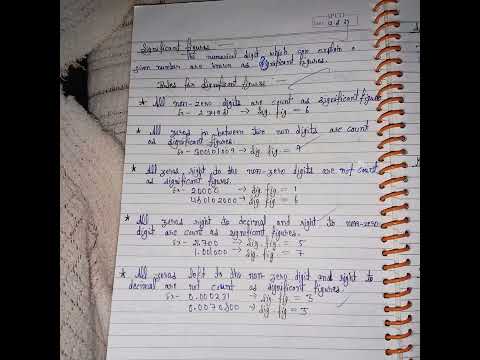 Significant figures
The numerical digit which can explain a
given number are known as significant figures.
Rules for Significant figure
* All non-zero digits are count as significant figure
sig. fig = 6
* All zeros in between two non digits are count
as significant figures.
Ex - 300601009 → sig. fig = 9
* All zeros right to the non-zero digits are not count
as significant figures.
Ex - 20000 → sig. fig = 1
450102000 → sig. fig = 6
* All zeros right to decimal and right to non-zero
digit are count as significant figures.
Ex - → sig. fig = 5
1.001000 → sig. fig = 7
* All zeros left to the non zero digit and right to
decimal are not count as significant figures.
Ex - 0.000231 → sig. fig = 3
→ sig. fig = 5